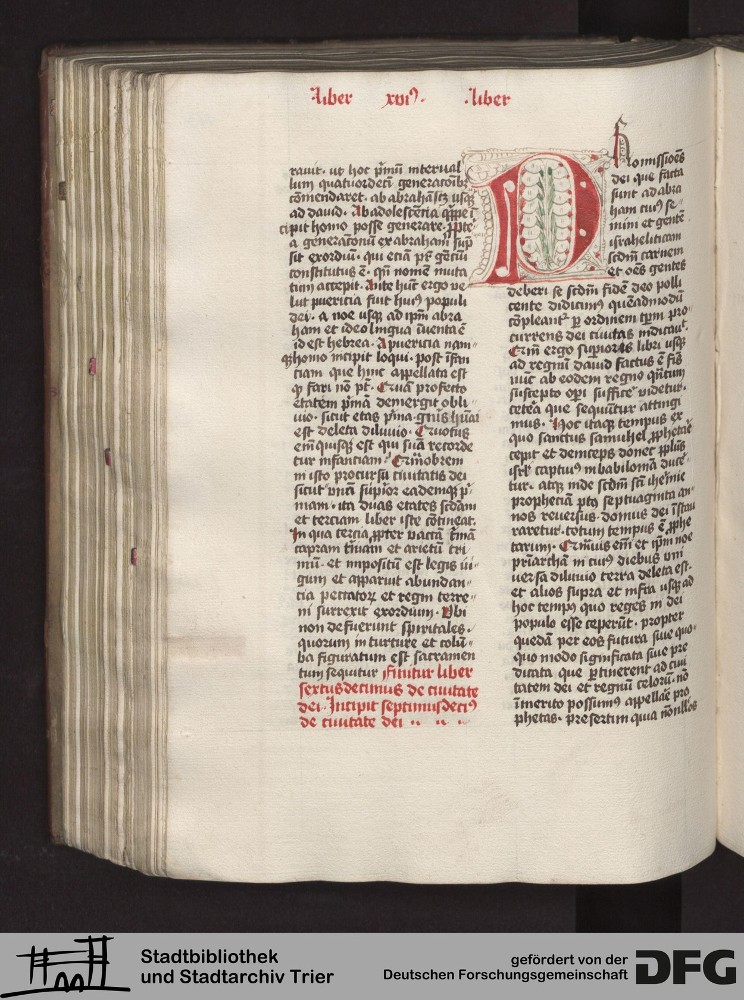 Liber xvi⁹. Liber
rauit. ut hoc p̄mū interual
lum quatuordeci generatōibꝫ
cōmendaret. ab abrahā usqꝫ
ad dauid. Ab adolescētia quippe ī
cipit homo posse generare. ꝓpte
a generatōnū ex abrahā sūp
sit exordiū. qui eciā pr̄ gētiū
constitutus ē. qn̄ nomē muta
tum accepit. Ante hūc ergo ve
lut puericia fuit huiꝰ populi
dei. a noe usqꝫ ad ip̄m abra
ham et ideo lingua īuenta ē
id est hebrea. A puericia nam
qꝫ homo incipit loqui. post īfan
ciam que hinc appellata est
ꝙ fari nō pt̄. Quā profecto
etatem p̄mā demergit obli
uio. sicut etas p̄ma gn̄is hūani
est deleta diluuio. Quotus
em̄ quisqꝫ est qui suā recorde
tur infanciam. Qm̄obrem
in isto procursu ciuitatis dei
sicut vnā supior eademqꝫ p̄
mam. ita duas etates scdam
et terciam liber iste cōtineat.
In qua tercia ꝓpter vaccā t̄mā
capram t̄mam et arietū tri
mū. et impositū est legis iu
gum et apparuit abundan
cia peccatoꝝ et regni terre
ni surrexit exordium. Vbi
non defuerunt spiritales.
quorum in turture et colū
ba figuratum est sacramen
tum sequitur Finitur liber
sextusdecimus de ciuitate
dei. Incipit septimusdeciꝰ
de ciuitate dei
Promissiōēs
dei que facta
sunt ad abra
ham cuiꝰ se
mini et gentē
israheliticam
scdm̄ carnem
et oēs gentes
deberi se scdm̄ fidē deo polli
cente didicimꝰ quēadmodū
cōpleant̄ ꝑ ordinem tp̄m pro
currens dei ciuitas indicauit.
Qm̄ ergo supioris libri usqꝫ
ad regnū dauid factus ē fīs
nūc ab eodem regno quātum
suscepto opi sufficē videtur.
cetera que sequūtur attingi
mus. Hoc itaqꝫ tempus ex
quo sanctus samuhel ꝓphetare
cepit et deinceps donec ppl̄us
isrl̄ captiuꝰ in babiloniā duce
tur. atqꝫ inde scdm̄ sc̄i iheremie
propheciam pꝰ septuaginta an
nos reuersus domus dei īstau
raretur. totum tempus ē ꝓphe
tarum. Qmuis em̄ et ip̄m noe
pr̄iarcham in cuiꝰ diebus vni
uersa diluuio terra deleta est.
et alios supra et infra usqꝫ ad
hoc tempꝰ quo reges in dei
populo esse ceperūt. propter
quedā per eos futura siue quo
quo modo significata siue pre
dicata que ꝑtinerent ad ciui
tatem dei et regnū celorū. nō
īmerito possumꝰ appellare pro
phetas. presertim quia nōnullos
Stadtbibliothek
und Stadtarchiv Trier
gefördert von der
Deutschen Forschungsgemeinschaft
DFG